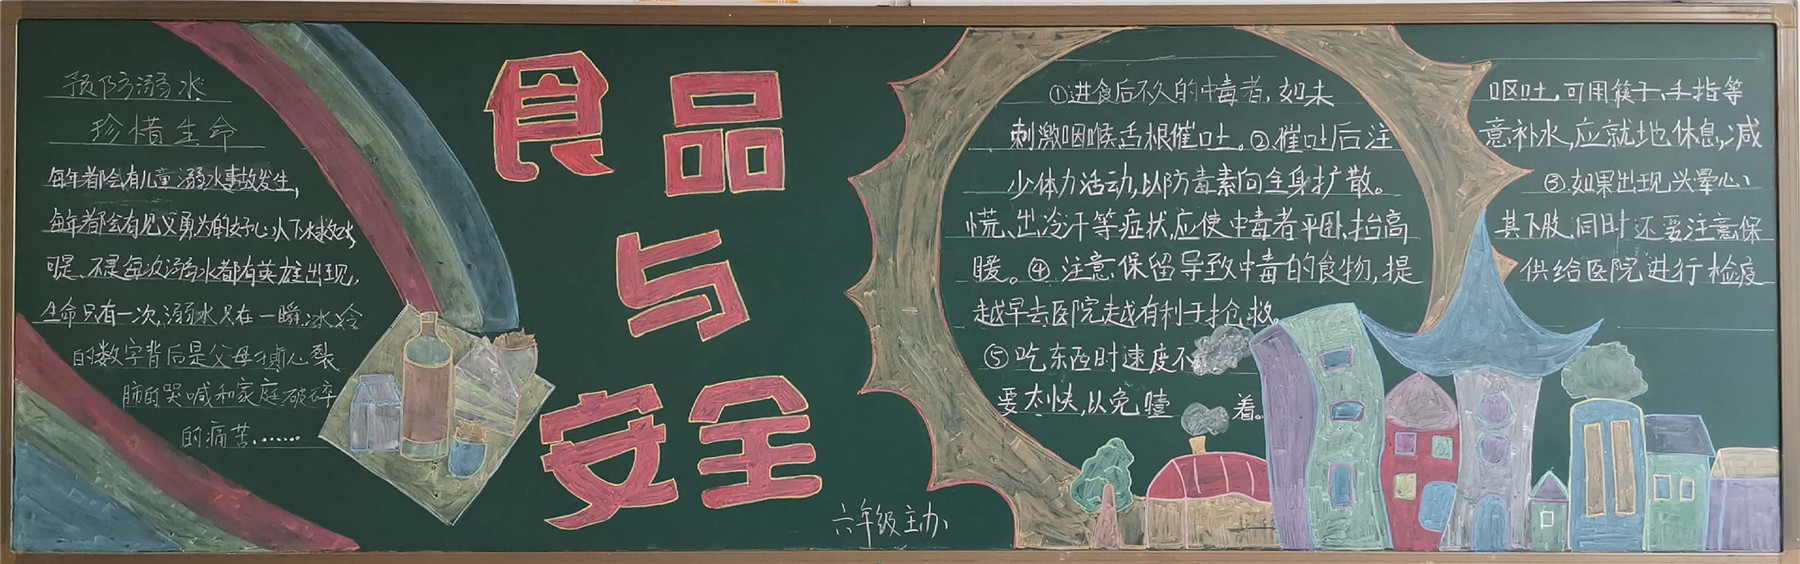 预防溺水
珍惜生命
每年都会有儿童溺水事故发生,
每年都会有见义勇为的好心人下水救人,
可是、不是每次溺水都有英雄出现,
生命只有一次,溺水只在一瞬,冰冷
的数字背后是父母撕心裂
肺的哭喊和家庭破碎
的痛苦……
食品
与
安全
六年级主办
①进食后不久的中毒者,如未呕吐,可用筷子、手指等
刺激咽喉、舌根催吐。②催吐后注意补水,应就地休息,减
少体力活动,以防毒素向全身扩散。③如果出现头晕心、
慌、出冷汗等症状,应使中毒者平卧,抬高其下肢,同时还要注意保
暖。④注意保留导致中毒的食物,提供给医院进行检疫
越早去医院越有利于抢救。
⑤吃东西时速度不
要太快,以免噎着。